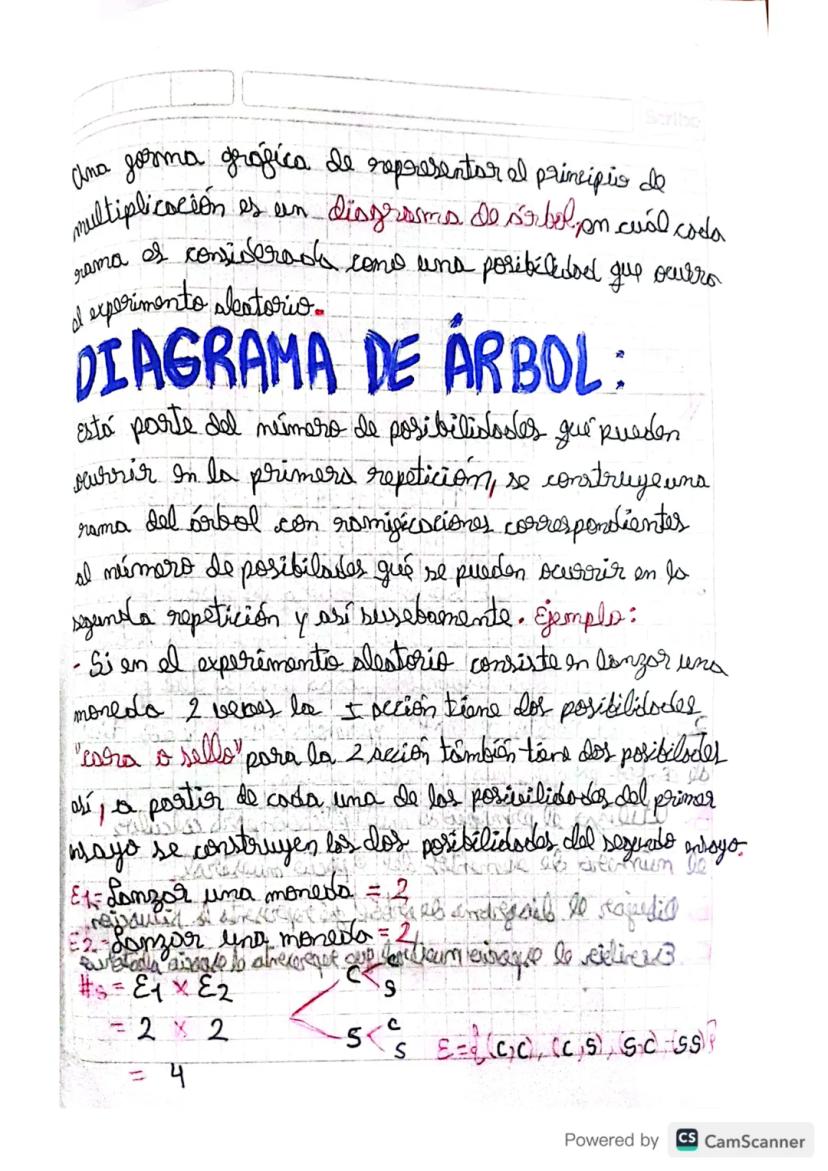 Scribe
Una forma gráfica de representar el principio de
multiplicación es un diagrama de árbol, en cuál cada
rama es considerada como una posibilidad que ocurra
el experimento aleatorio.
DIAGRAMA DE ÁRBOL:
Está parte del número de posibilidades qué pueden
ocurrir en la primera repetición, se construye una
rama del árbol con ramificaciones correspondientes
al número de posibilades qué se pueden ocurrir en la
segunda repetición y así susebamente. Ejemplo:
- Si en el experimento aleatorio consiste en lanzar una
moneda 2 veces la I acción tiene dos posibilidades
"cara o sello" para la 2 acción también tiene dos posibilades
así, a partir de cada una de las posibilidades del primer
ensayo se construyen las dos posibilidades del segundo ensayo.
E1= Lanzar una moneda = 2
E2= Lanzar una moneda = 2
#s = E1 x E2
= 2 x 2
= 4
C < C
S
S < C
S
E={(C,C), (C,S), (S,C), (SS)}
Powered by CS CamScanner